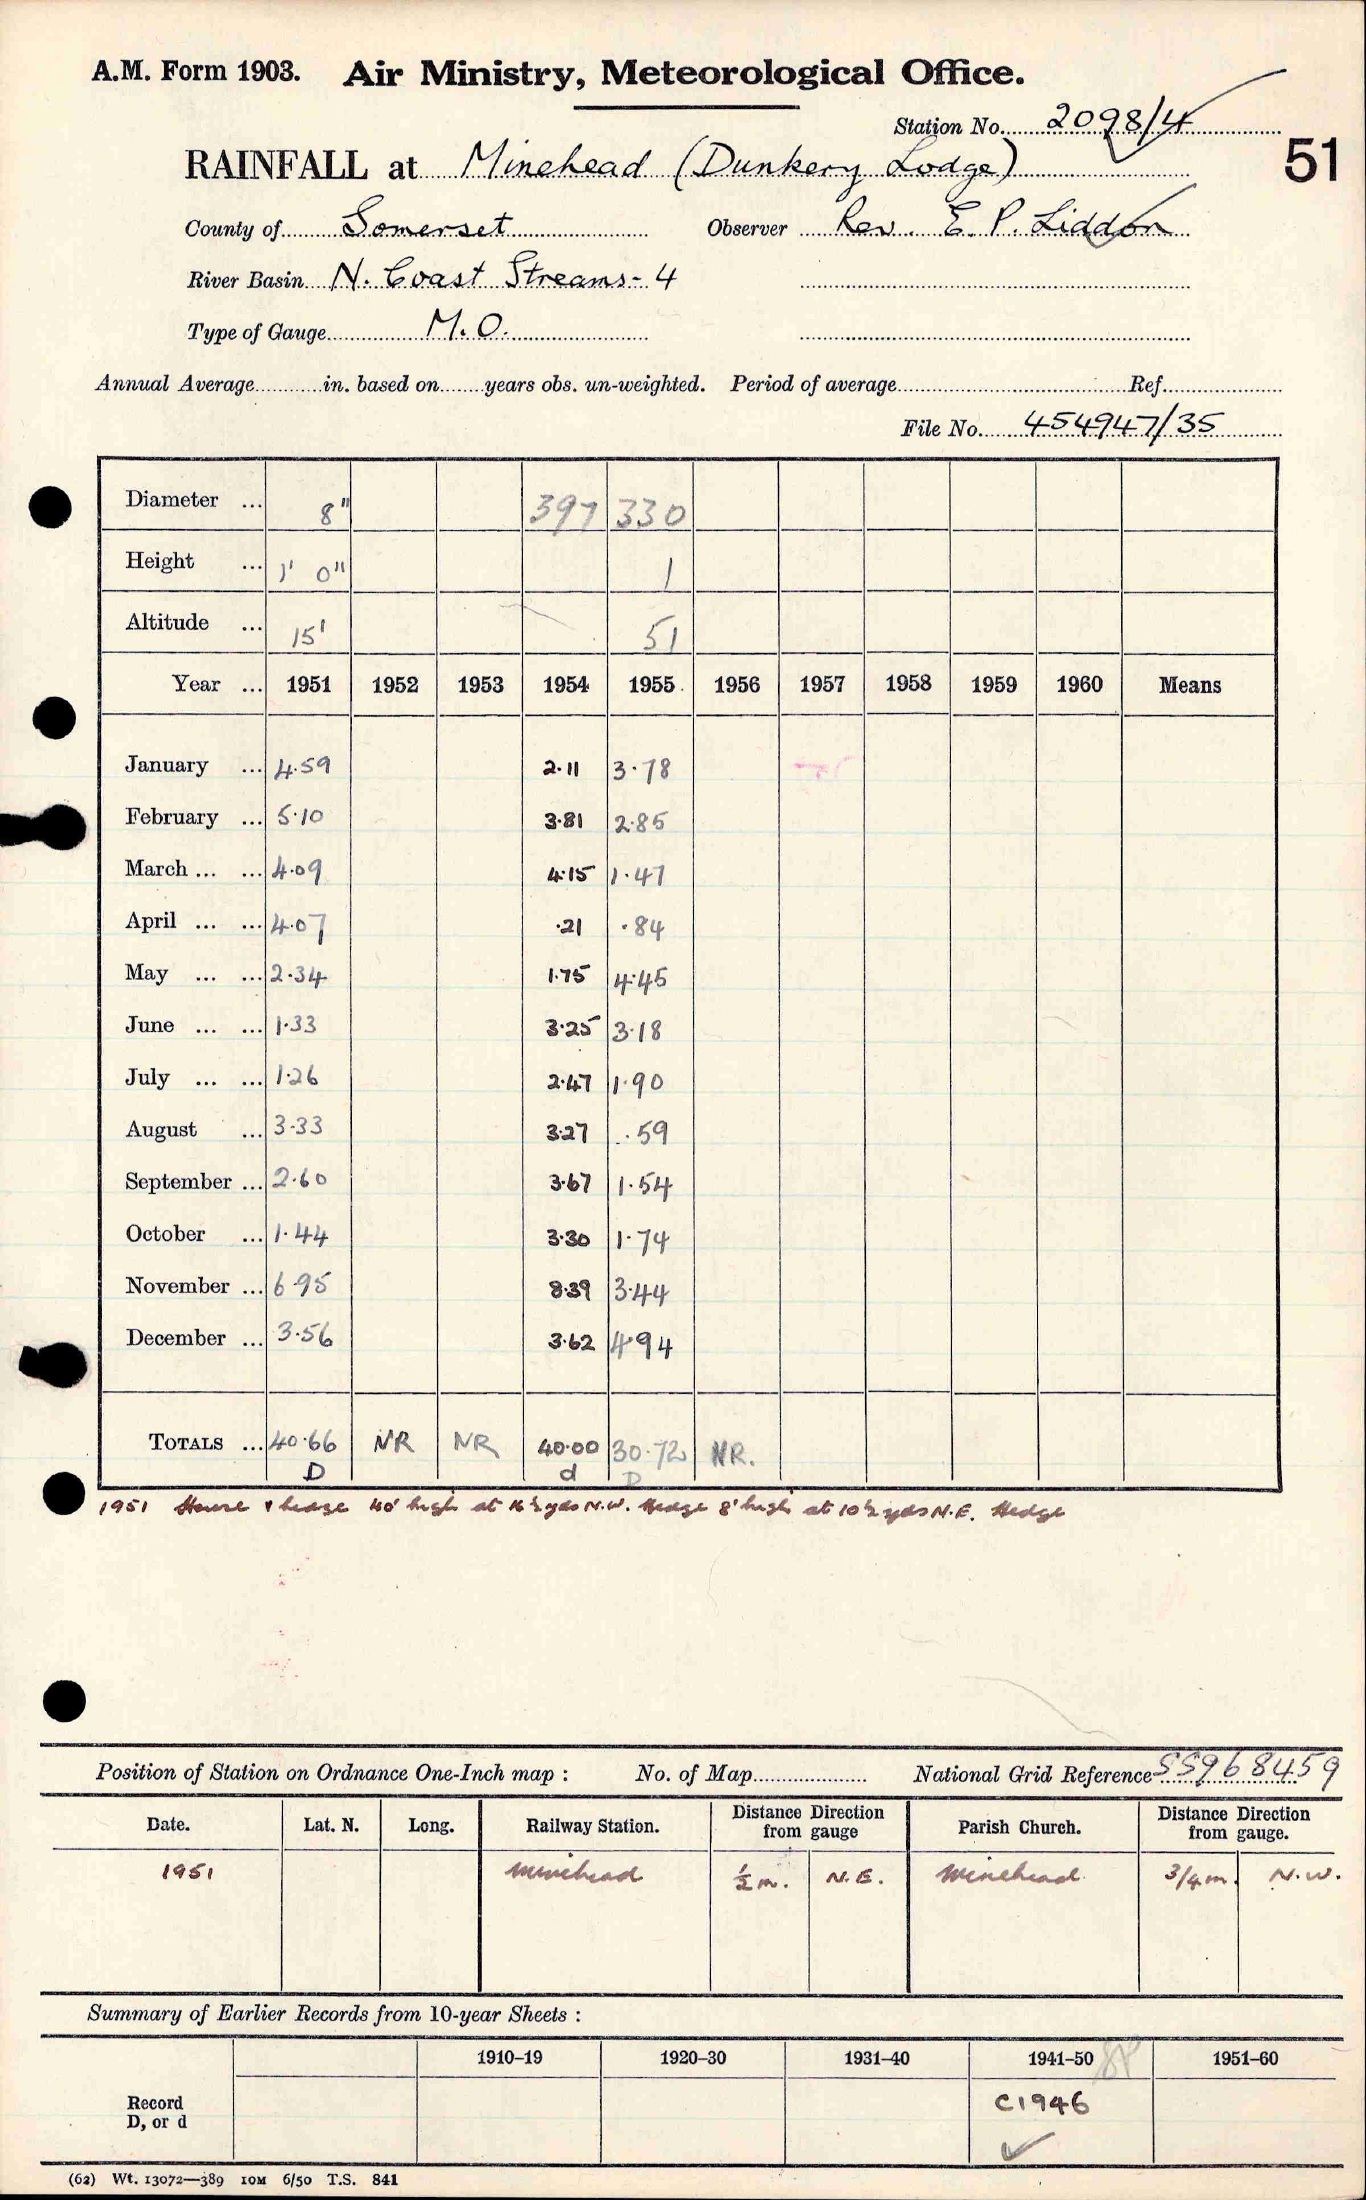 A.M. Form 1903. Air Ministry, Meteorological Office.
Station No. 2098/4
51
RAINFALL at Minehead (Dunkery Lodge)
County of Somerset Observer Rev. E. P. Liddon
River Basin N. Coast Streams - 4
Type of Gauge M.O.
Annual Average in. based on years obs. un-weighted. Period of average Ref.
File No. 454947/35
Diameter ... 8" 397 330
Height ... 1' 0" 1
Altitude ... 15' 51
Year ... 1951 1952 1953 1954 1955 1956 1957 1958 1959 1960 Means
January ... 4.59 2.11 3.78
February ... 5.10 3.81 2.85
March ... ... 4.09 4.15 1.47
April ... ... 4.07 .21 .84
May ... ... 2.34 1.75 4.45
June ... ... 1.33 3.25 3.18
July ... ... 1.26 2.47 1.90
August ... 3.33 3.27 .59
September ... 2.60 3.67 1.54
October ... 1.44 3.30 1.74
November ... 6.95 8.39 3.44
December ... 3.56 3.62 4.94
TOTALS ... 40.66 NR NR 40.00 30.72 NR.
D d D
1951 House & hedge 40' high at 16½ yds N.W. Hedge 8' high at 10½ yds N.E. Hedge
Position of Station on Ordnance One-Inch map : No. of Map National Grid Reference SS968459
Date. Lat. N. Long. Railway Station. Distance Direction from gauge Parish Church. Distance Direction from gauge.
1951 Minehead ½ m. N.E. Minehead 3/4 m. N.W.
Summary of Earlier Records from 10-year Sheets :
1910–19 1920–30 1931–40 1941–50 1951–60
Record
D, or d
C1946
(62) Wt. 13072—389 10M 6/50 T.S. 841